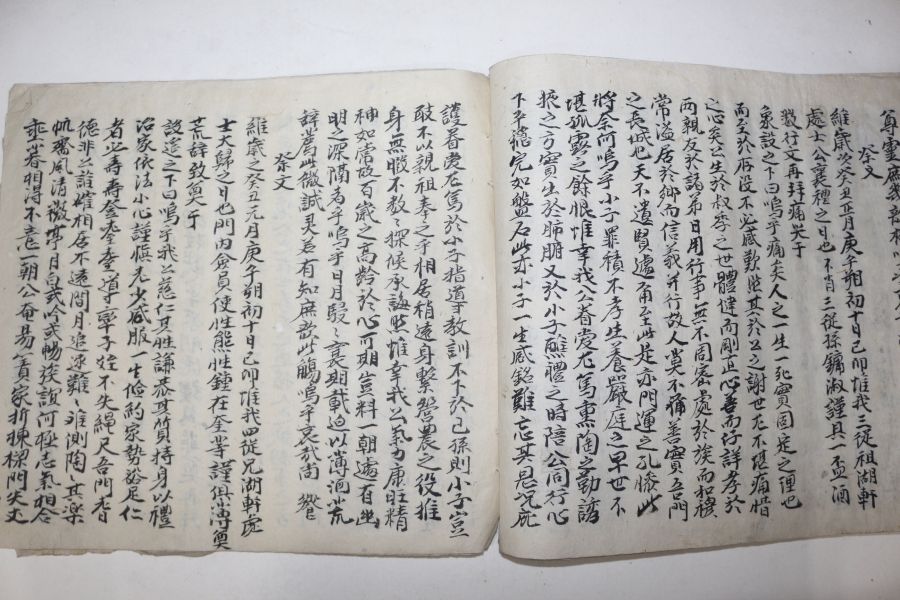 尊靈庶幾
祭文
維歲次癸丑正月庚午朔初十日己卯惟我三從祖湖軒
處士公襄禮之日也不肖三從孫鏞淑謹具一盃酒
數行文再拜痛哭于
象設之下曰嗚乎痛矣人之一生一死實固是之理也
而至於再從不必感歎然其於公之謝世尤不堪痛惜
之心矣公生於叔季之世體健而剛正心善而仔詳孝於
兩親友於諸弟日用行事無不周密處於族而和穆
常造居於鄉而信義并行故人莫不稱善實吾門
之長城也天不遺賢遽爾至此是亦門運之孔慘此
將奈何嗚乎小子罪積不孝生養嚴庭之早世不
堪孤露之餘恨惟幸我公眷愛尤篤熏陶之勤誘
掖之方實生於肺腑又於小子醮禮之時陪公同行心
下平穩完如盤石此亦小子一生感銘難忘其恩况死
謹眷愛尤篤於小子指導教訓不下於己孫則小子豈
敢不以親祖奉之乎相居稍遠身繫營農之役推
身無暇不教探候承誨然惟幸我公氣力康旺精
神如常故百歲之高齡於心可期豈料一朝遽有幽
明之深隔者乎嗚乎日月駸駸襄期載迫以薄酒荒
辭薦此微誠灵若有知庶歆此觴嗚乎哀哉尚 饗
祭文
維歲之癸丑元月庚午朔初十日己卯惟我四從兄湖軒處
士夭歸之日也門內會員使性熊性鍾在奎等謹俱薄奠
荒辭敬奠于
設筵之下曰嗚乎我公慈仁其性謙恭其質持身以禮
治家依法小心謹愼尤少感服一生儉約家勢裕足仁
者必壽壽登耋耋導率子姪不失繩尺吾門耆
德非公誰惟相居不遠間月追逐難難維測陶陶其樂
帆喬風清微亭月白或吟或暢族誼何極志氣相合
乖眷相得不意一朝公奄易簀家折棟樑門失丈